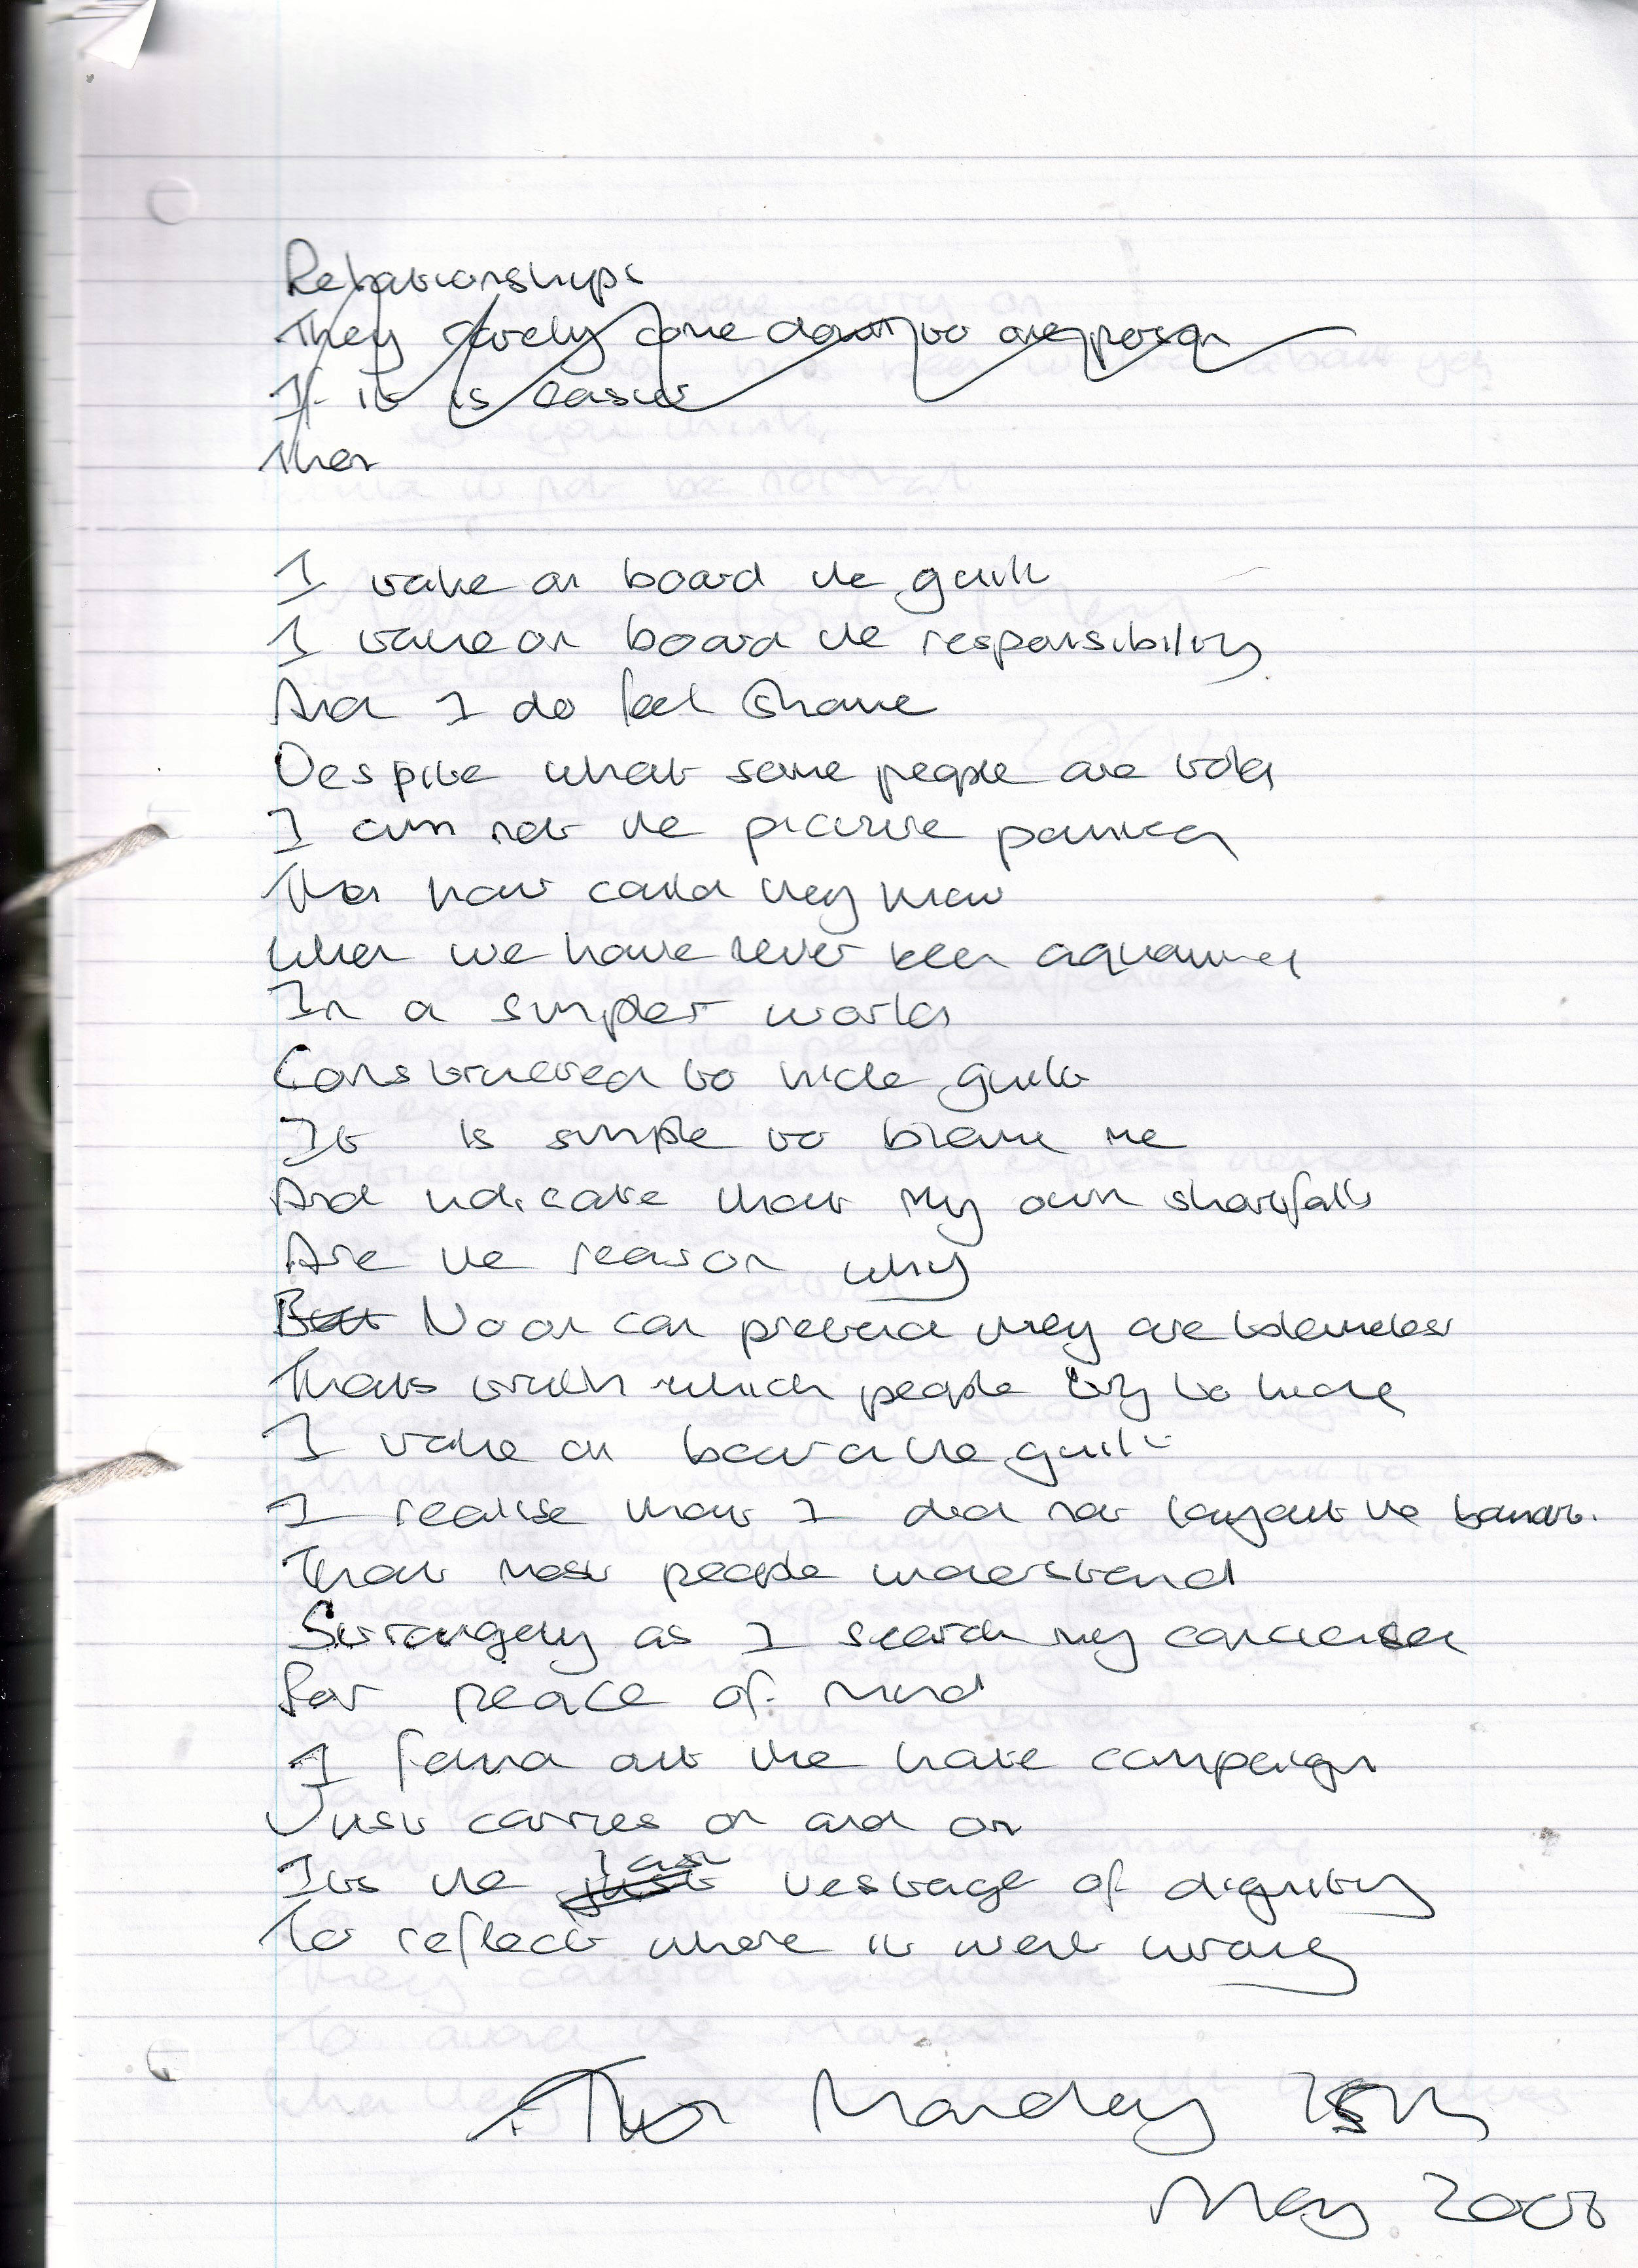 Relationships
They rarely come down to one person
If it is easier
Then
I take on board the guilt
I take on board the responsibility
And I do feel Shame
Despite what some people are told
I am not the picture painted
Then how could they know
When we have never been aquainted
In a simpler world
Constructed to hide guilt
It is simple to blame me
And indicate that my own shortfalls
Are the reason why
But No on can pretend they are blameless
Thats truth which people try to hide
I take on board the guilt
I realise that I did not layout the
That most people understand
Strangely as I search my
for peace of mind
I found out the hate campaign
Just carries on and on
Its the just last vestage of dignity
To reflect where it went wrong
Monday 25th
May 2008